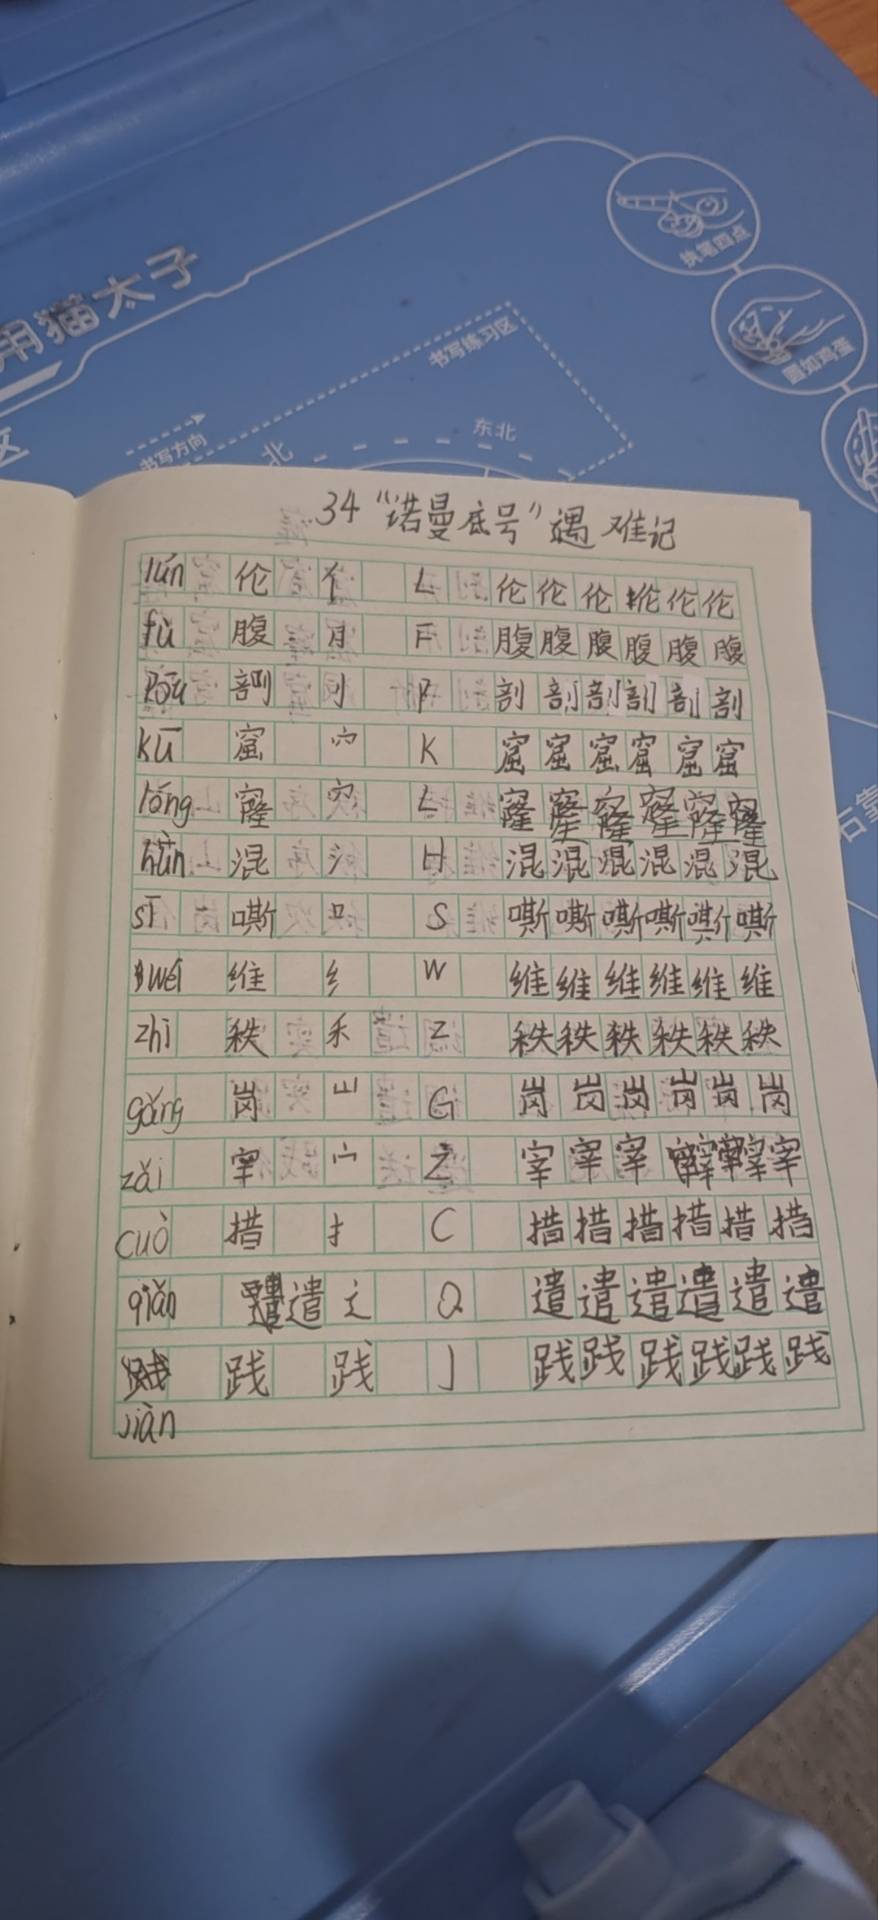 执笔四点
用猫太子
书写练习区
圆如鸡蛋
区
书写方向
北
东北
34 “诺曼底号”遇难记
lún 伦 亻 L 伦 伦 伦 伦 伦 伦
fù 腹 月 F 腹 腹 腹 腹 腹 腹
pōu 剖 刂 P 剖 剖 剖 剖 剖 剖
kū 窟 穴 K 窟 窟 窟 窟 窟 窟
lóng 窿 穴 L 窿 窿 窿 窿 窿 窿
右靠
hùn 混 氵 H 混 混 混 混 混 混
sī 嘶 口 S 嘶 嘶 嘶 嘶 嘶 嘶
wéi 维 纟 W 维 维 维 维 维 维
zhì 秩 禾 Z 秩 秩 秩 秩 秩 秩
gǎng 岗 山 G 岗 岗 岗 岗 岗 岗
zǎi 宰 宀 Z 宰 宰 宰 宰 宰 宰
cuò 措 扌 C 措 措 措 措 措 措
qiǎn 遣 辶 Q 遣 遣 遣 遣 遣 遣
践 践 J 践 践 践 践 践 践
jiàn